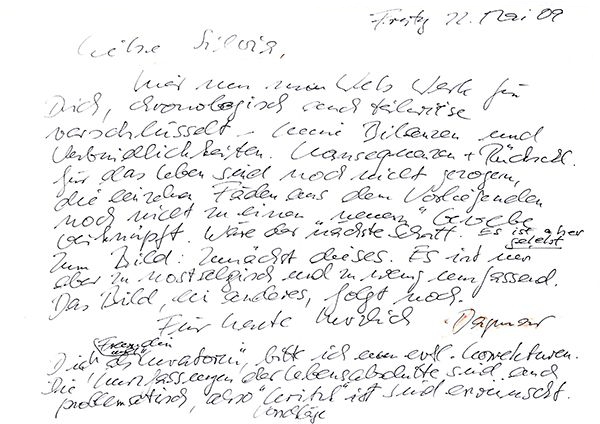 Freitg 22. Mai 09
Liebe Silvia,
hier nun mein Werk für
Dich, chronologisch und teilweise
verschlüsselt – meine Bilanzen und
Verbindlichkeiten. Konsequenzen + Rückschl.
für das Leben sind noch nicht gezogen,
die einzelnen Fäden aus dem Vorliegenden
noch nicht zu einem „neuen" Gewebe
verknüpft. Wäre der nächste Schritt. Es ist aber
gelebt
Zum Bild: zunächst dieses. Es ist mir
aber zu nostalgisch und zu wenig umfassend.
Das Bild, ein anderes, folgt noch.
Für heute herzlich Dagmar
Freundin
Dich als „Kuratorin", bitt ich um evtl. Korrekturen.
Die Kurzfassungen der Lebensabschnitte sind auch
problematisch, also „Kritik" ist sind erwünscht.
Vorschläge